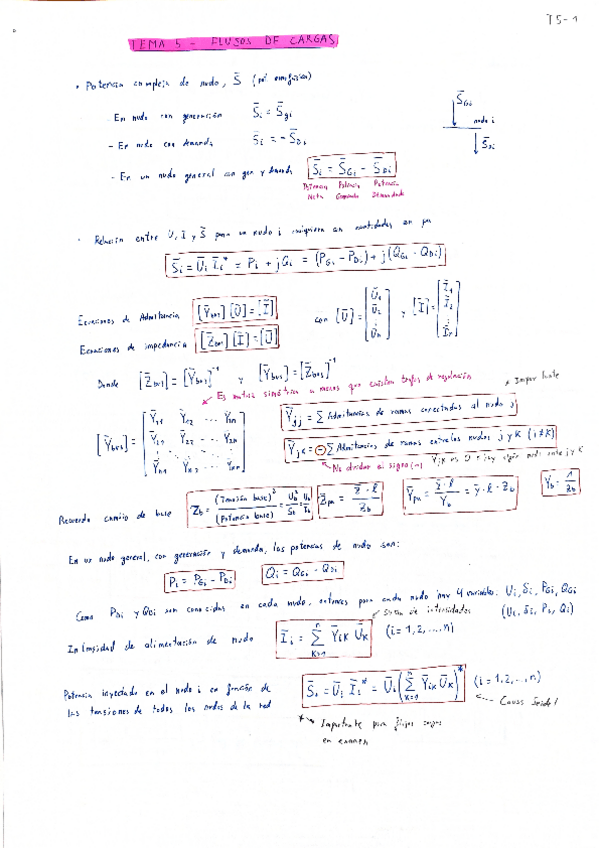 T5-1
TEMA 5 - FLUJOS DE CARGAS
• Potencia compleja de nudo, S̄
- En nudo con generación S̄i = S̄Gi
- En nudo con demanda S̄i = - S̄Di
- En un nudo general con gen y demanda S̄i = S̄Gi - S̄Di
Potencia Neta Potencia Generada Potencia Demandada
S̄Gi
nudo i
S̄Di
• Relación entre Ū, Ī y S̄ para un nudo i cualquiera en cantidades en pu
S̄i = Ūi Īi* = Pi + jQi = (PGi - PDi) + j(QGi - QDi)
Ecuaciones de Admitancia [Ȳbus] [Ū] = [Ī]
Ecuaciones de impedancia [Z̄bus] [Ī] = [Ū]
con [Ū] = [Ū1 Ū2 ⋮ Ūn] y [Ī] = [Ī1 Ī2 ⋮ Īn]
Donde [Z̄bus] = [Ȳbus]⁻¹ y [Ȳbus] = [Z̄bus]⁻¹
Es matriz simétrica a menos que existan trafos de regulación
* Importante
[Ȳbus] =
Ȳ11 Ȳ12 ... Ȳ1n
Ȳ21 Ȳ22 ... Ȳ2n
Ȳn1 Ȳn2 ... Ȳnn
Ȳjj = Σ Admitancias de ramas conectadas al nudo j
Ȳjk = - Σ Admitancias de ramas entre los nudos j y K (j ≠ K)
No olvidar el signo (-)
Recuerdo cambio de base Zb = (Tensión base)² / (Potencia base) = Ub²/Sb = Ub/Ib
Z̄pu = z̄ · l / Zb
Ȳpu = ȳ · l / Yb = ȳ · l · Zb
Yb = 1/Zb
En un nudo general, con generación y demanda, las potencias de nudo son:
Pi = PGi - PDi Qi = QGi - QDi
Como PDi y QDi son conocidas en cada nudo, entonces para cada nudo hay 4 variables: Ui, δi, PGi, QGi
(Ui, δi, Pi, Qi)
Suma de intensidades
Intensidad de alimentación de nudo Īi = Σ(K=1, n) ȲiK ŪK (i = 1, 2, ..., n)
Potencia inyectada en el nudo i en función de
las tensiones de todos los nudos de la red
S̄i = Ūi Īi* = Ūi (Σ(K=1, n) ȲiK ŪK)* (i = 1, 2, ..., n)
Gauss Seidel
* Importante para flujos cargas
en examen